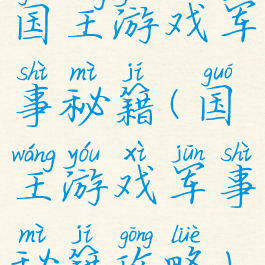 国王游戏军
shì mì jí guó
事秘籍(国
wáng yóu xì jūn shì
王游戏军事
mì jí gōng lüè
秘籍攻略)